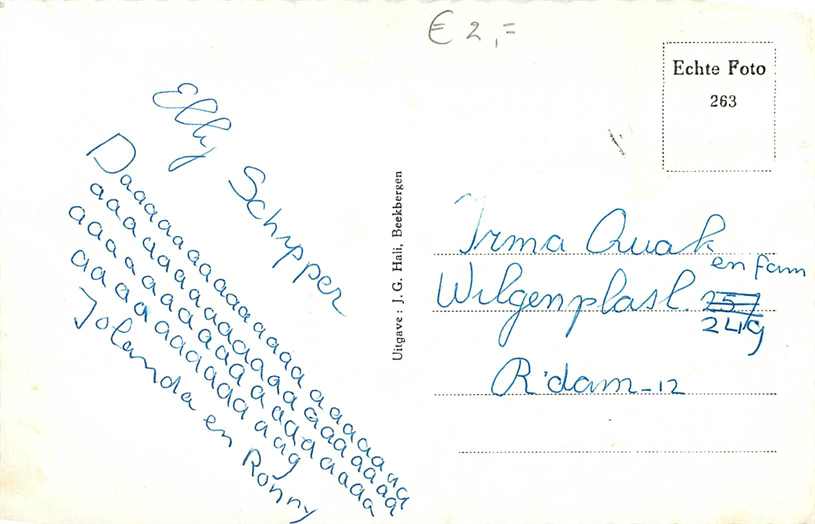 € 2,=
Echte Foto
263
Elly Schipper
Daaaaaaaaaaaaaaaaaaaa
aaaaaaaaaaaaaaaaaaaaa
aaaaaaaaaaaaaaaaaaaa
aaaaaaaaaaaaag
Jolanda en Ronny
Uitgave: J. G. Hall, Beekbergen
Irma Quak
en fam
Wilgenplasl. 257
249
R'dam-12